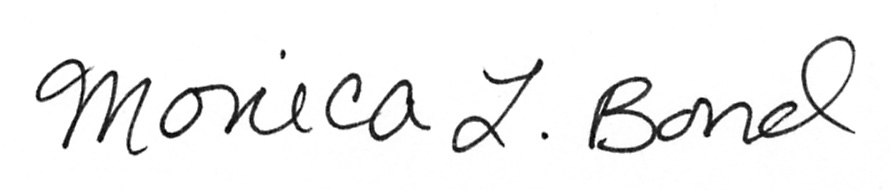 Monica L. Bond